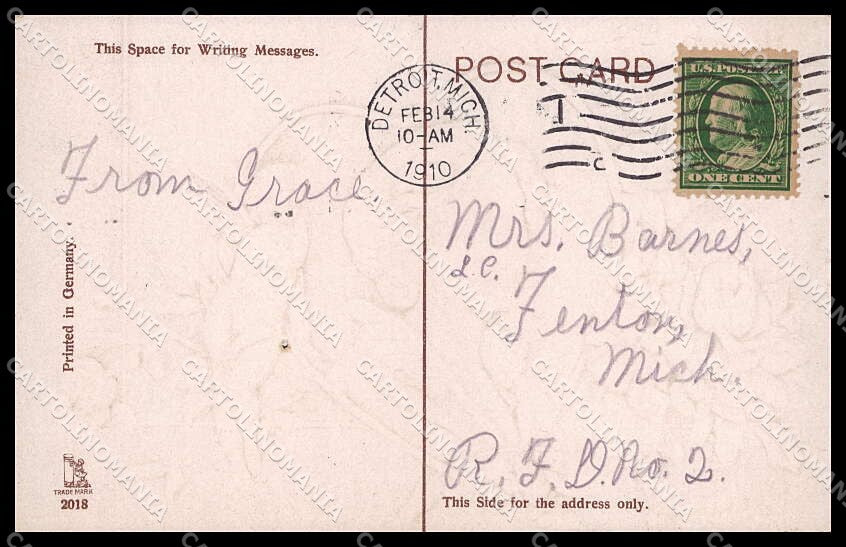 This Space for Writing Messages.
From Grace.
Printed in Germany.
TRADE MARK
2018
POST CARD
DETROIT, MICH.
FEB 14
10-AM
1910
U.S. POSTAGE
ONE CENT
Mrs. Barnes,
Fenton,
Mich.
R. F. D. No. 2.
This Side for the address only.
CARTOLINOMANIA